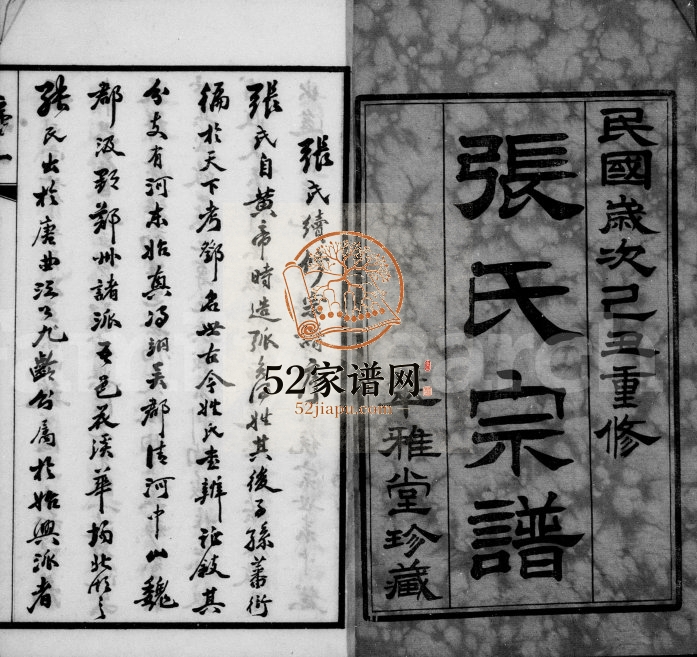 民國歲次己丑重修
張氏宗譜
雅堂珍藏
張氏續修宗譜
張氏自黃帝時造弧矢得姓其後子孫蕃衍
徧於天下考鄧名世古今姓氏書辨證敍其
分支有河東始興馮翊吳郡清河中山魏
郡汲郡鄭州諸派吾邑花溪華場北
張氏出於唐曲江公九齡公屬於始興派者
52家谱网
52jiapu.com